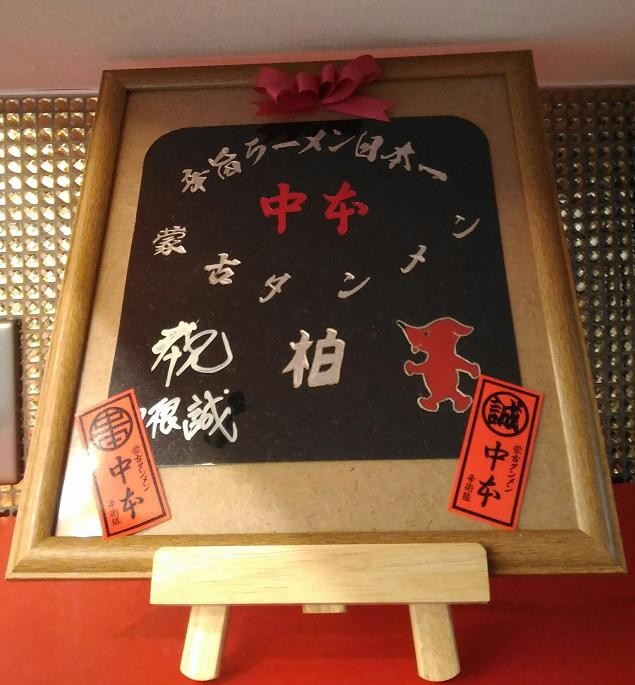 激旨ラーメン日本一
中本
蒙古タンメン
祝 柏
根誠
蒙古タンメン
中本
辛術隊
誠
蒙古タンメン
中本
辛術隊